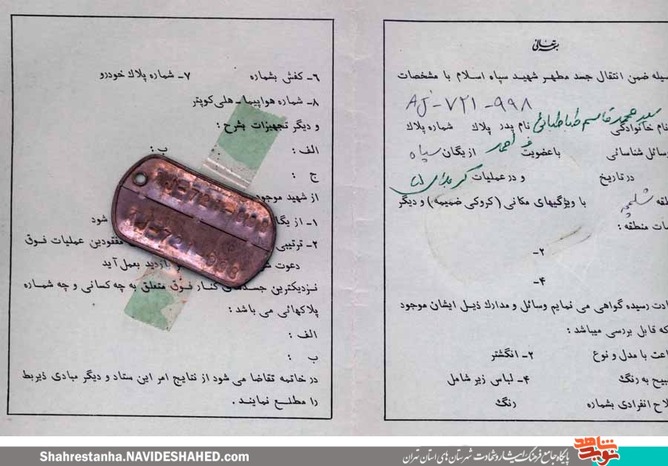 بسمه تعالی
سیله ضمن انتقال جسد مطهر شهید سپاه اسلام با مشخصات
AJ-۷۲۱-۹۹۸
سید محمد قاسم طباطبائی
نام خانوادگی نام پدر پلاک شماره پلاک
سائل شناسائی باعضویت از یگان سپاه
در تاریخ و در عملیات کربلای
با ویژگیهای مکانی (کروکی ضمیمه) و دیگر
ات منطقه :
-۲
-۴
ت رسیده گواهی می نمایم وسائل و مدارك ذیل ایشان موجود
که قابل بررسی میباشد :
عت با مدل و نوع ۲- انگشتر
بیح به رنگ ۴- لباس زیر شامل
لاح انفرادی بشماره رنگ
۶- کفش بشماره ۷- شماره پلاك خودرو
۸- شماره هواپیما- هلی کوپتر
و دیگر تجهیزات بشرح :
الف : ب :
ج :
از شهید موجود
۱- از یگا شود
۲- ترتیبی مفقودین عملیات فوق
دعوت بازدید بعمل آید
نزدیکترین جسدهای کنار فوق متعلق به چه کسانی و چه شماره
پلاکهائی می باشد :
الف :
ب :
در خاتمه تقاضا می شود از نتایج امر این ستاد و دیگر مبادی ذیربط
را مطلع نمایند .
Shahrestanha.NAVIDESHAHED.com
پایگاه جامع فرهنگ ایثار و شهادت شهرستان های استان تهران
نوید شاهد